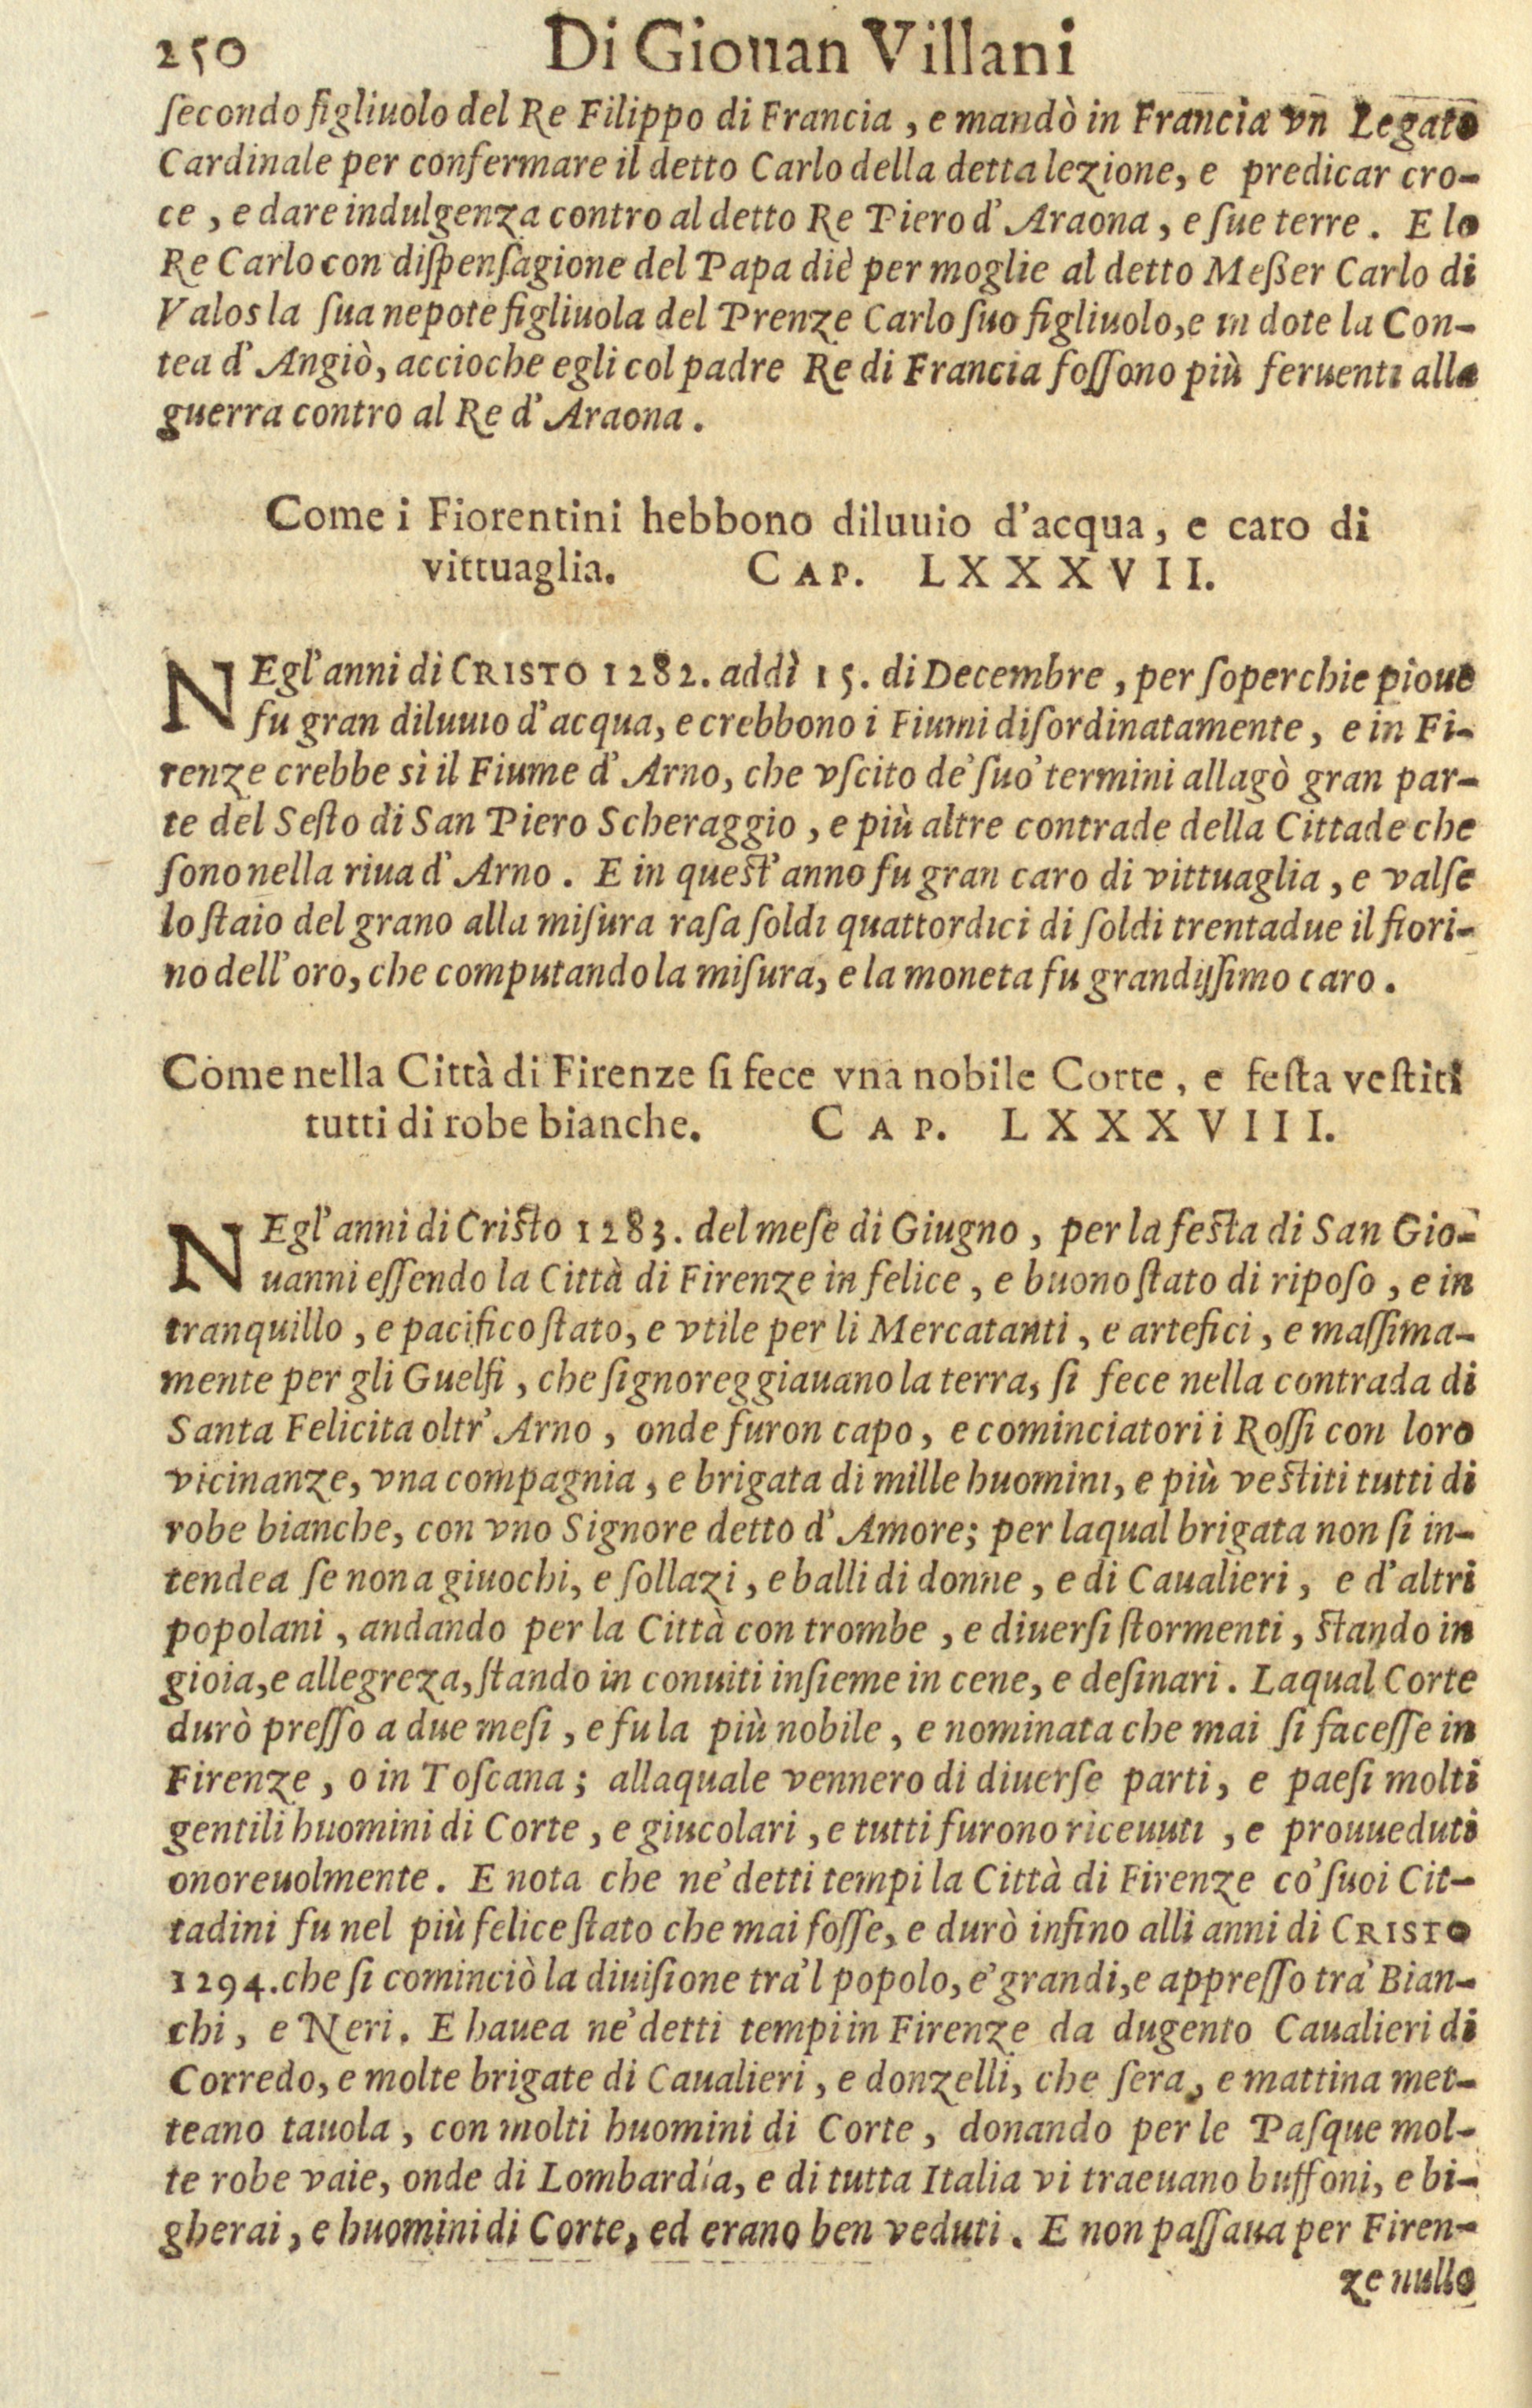 250 Di Giouan Villani
ſecondo figliuolo del Re Filippo di Francia, e mandò in Francia vn Legato
Cardinale per confermare il detto Carlo della detta lezione, e predicar cro-
ce, e dare indulgenza contro al detto Re Piero d'Araona, e ſue terre. E lo
Re Carlo con diſpenſagione del Papa diè per moglie al detto Meßer Carlo di
Valos la ſua nepote figliuola del Prenze Carlo ſuo figliuolo, e in dote la Con-
tea d'Angiò, accioche egli col padre Re di Francia foſſono più feruenti alla
guerra contro al Re d'Araona.
Come i Fiorentini hebbono diluuio d'acqua, e caro di
vittuaglia. CAP. LXXXVII.
NEgl'anni di CRISTO 1282. addì 15. di Decembre, per ſoperchie pioue
fu gran diluuio d'acqua, e crebbono i Fiumi diſordinatamente, e in Fi-
renze crebbe sì il Fiume d'Arno, che vſcito de' ſuo' termini allagò gran par-
te del Seſto di San Piero Scheraggio, e più altre contrade della Cittade che
ſono nella riua d'Arno. E in queſt'anno fu gran caro di vittuaglia, e valſe
lo ſtaio del grano alla miſura raſa ſoldi quattordici di ſoldi trentadue il fiori-
no dell'oro, che computando la miſura, e la moneta fu grandiſſimo caro.
Come nella Città di Firenze ſi fece vna nobile Corte, e feſta veſtiti
tutti di robe bianche. CAP. LXXXVIII.
NEgl'anni di Criſto 1283. del meſe di Giugno, per la feſta di San Gio-
uanni eſſendo la Città di Firenze in felice, e buono ſtato di ripoſo, e in
tranquillo, e pacifico ſtato, e vtile per li Mercatanti, e artefici, e maſſima-
mente per gli Guelfi, che ſignoreggiauano la terra, ſi fece nella contrada di
Santa Felicita oltr'Arno, onde furon capo, e cominciatori i Roſſi con loro
vicinanze, vna compagnia, e brigata di mille huomini, e più veſtiti tutti di
robe bianche, con vno Signore detto d'Amore; per laqual brigata non ſi in-
tendea ſe non a giuochi, e ſollazi, e balli di donne, e di Caualieri, e d'altri
popolani, andando per la Città con trombe, e diuerſi ſtormenti, ſtando in
gioia, e allegreza, ſtando in conuiti inſieme in cene, e deſinari. Laqual Corte
durò preſſo a due meſi, e fu la più nobile, e nominata che mai ſi faceſſe in
Firenze, o in Toſcana; allaquale vennero di diuerſe parti, e paeſi molti
gentili huomini di Corte, e giucolari, e tutti furono riceuuti, e prouueduti
onoreuolmente. E nota che ne' detti tempi la Città di Firenze co' ſuoi Cit-
tadini fu nel più felice ſtato che mai foſſe, e durò infino alli anni di CRISTO
1294. che ſi cominciò la diuiſione tra'l popolo, e' grandi, e appreſſo tra' Bian-
chi, e Neri. E hauea ne' detti tempi in Firenze da dugento Caualieri di
Corredo, e molte brigate di Caualieri, e donzelli, che ſera, e mattina met-
teano tauola, con molti huomini di Corte, donando per le Paſque mol-
te robe vaie, onde di Lombardia, e di tutta Italia vi traeuano buffoni, e bi-
gherai, e huomini di Corte, ed erano ben veduti. E non paſſaua per Firen-
ze nullo